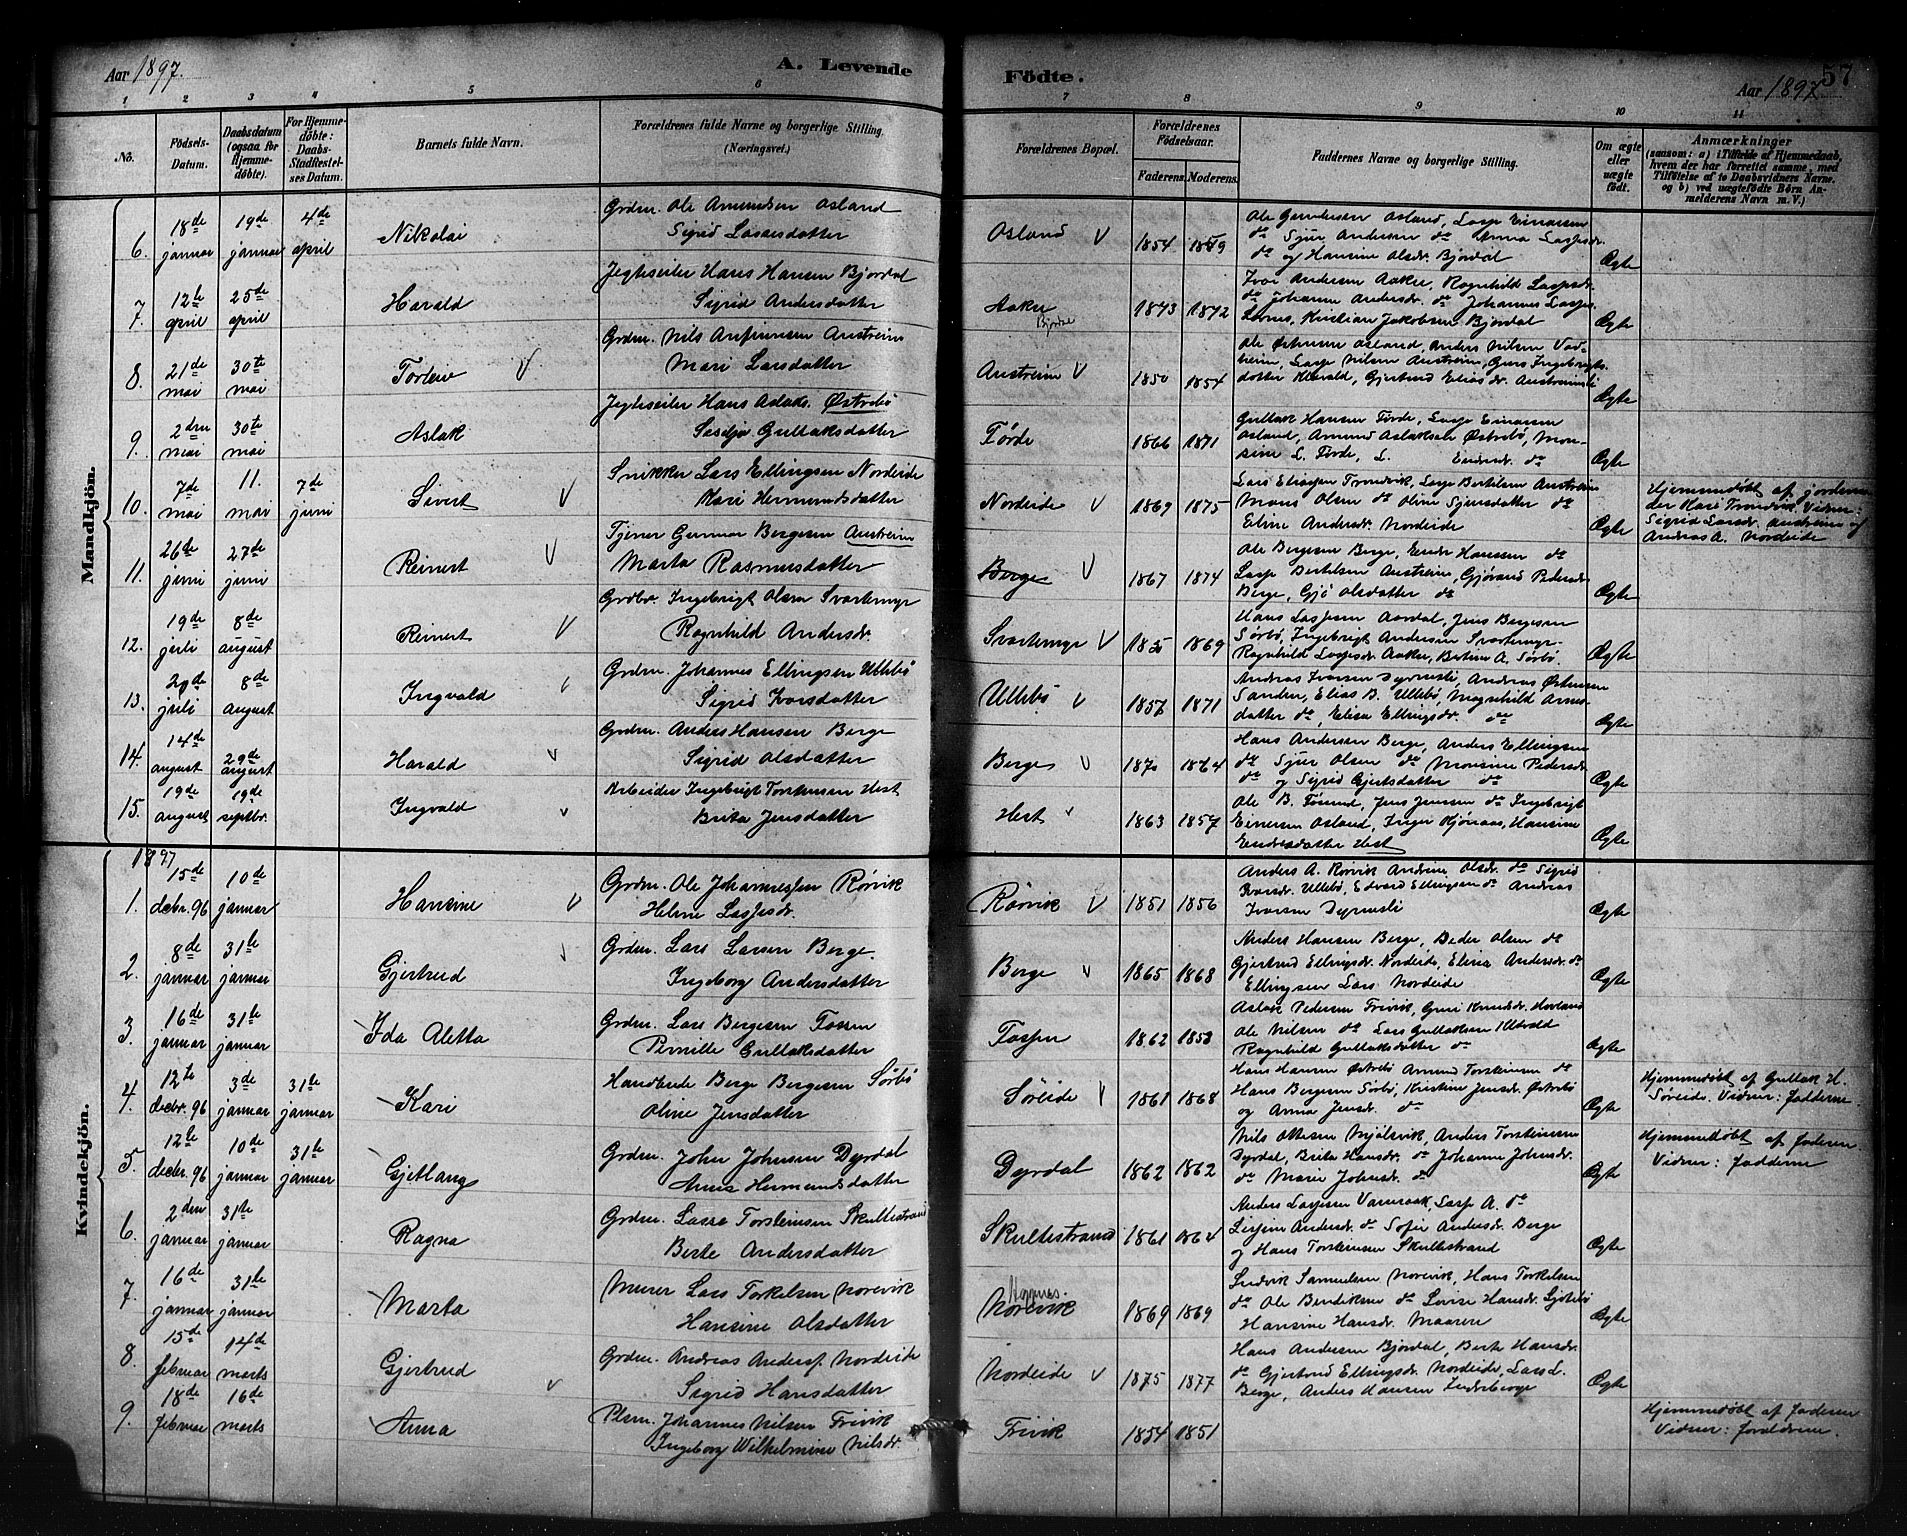 Aar 1897.
A. Levende
Födte.
57
Aar 1897
1 2 3 4 5 6 7 8 9 10 11
No.
Födsels-Datum.
Daabsdatum (ogsaa for Hjemmedöbte).
For Hjemmedöbte: Daabs-Stadfæstelses Datum.
Barnets fulde Navn.
Forældrenes fulde Navne og borgerlige Stilling. (Næringsvei.)
Forældrenes Bopæl.
Forældrenes Födselsaar.
Faderens. Moderens.
Faddernes Navne og borgerlige Stilling.
Om ægte eller uægte födt.
Anmærkninger
(saasom: a) i Tilfælde af Hjemmedaab, hvem der har forrettet samme, med Tilföielse af to Daabsvidners Navne, og b) ved uægtefödte Börn Anmelderens Navn m. V.)
Mandkjön.
6. 18de januar 19de januar 4de april Nikolai Grdm. Ole Amundsen Osland
Sigrid Lassesdatter Osland V 1854 1859 Ole Gundersen Osland, Lasse Einarsen
do Sjur Andersen do Anna Lassesdr.
do og Hansine Olsdr. Bjordal Ægte
7. 12te april 25de april Harald Jegteseiler Hans Hansen Bjordal
Sigrid Andersdatter Aaker Bjordal 1843 1842 Ivar Andersen Aaker, Ragnhild Lassesdr.
do Johanne Andersdr. do Johannes Lasses.
Kristian Jakobsen Bjordal Ægte
8. 21de mai 30te mai Torleiv V Grdm. Nils Arnfinnsen Austreim
Mari Larsdatter Austreim V 1850 1854 Ole Østensen Osland, Anders Nilsen Vad-
heim, Lasse Nilsen Austreim, Guri Ingebrigts-
datter Kleivald, Gjertrud Eliasdr. Austreimsli Ægte
9. 2den mai 30te mai Aslak Jegteseiler Hans Aslaks. Østrebö
Sesilja Gullaksdatter Förde 1866 1871 Gullak Hansen Förde, Lasse Einarsen
Osland, Amund Aslaksen Østrebö, Mon-
sine L. Förde, L. Endresdr. do Ægte
10. 7de mai 11. mai 7de juni Sivert V Snikker Lars Ellingsen Nordeide
Kari Hermundsdatter Nordeide V 1869 1875 Lars Eliasen Trondvik, Lasse Bertilsen Austreim
Mons Olsen do Oline Sjursdatter do
Eline Andersdr. Nordeide Ægte Hjemmedöbt af jordemo-
der Kari Trondvik. Vidner:
Sigrid Larsdr. Austreim og
Andras A. Nordeide
11. 26te juni 27de juni Reinert V Tjener Gunnar Bergesen Austreim
Marta Rasmusdatter Berge V 1867 1874 Ole Bergesen Berge, Endre Hanssen do
Lasse Bertelsen Austreim, Gjörond Pedersdr.
Berge, Gjö Olsdatter do Ægte
12. 19de juli 8de august Reinert V Grdbr. Ingebrigt Olsen Svartemyr
Ragnhild Andersdr. Svartemyr V 1869 Hans Lassesen Aardal, Jens Bergesen
Sörbö, Ingebrigt Andersen Svartemyr.
Ragnhild Lassesdr. Aaker, Betine A. Sörbö. Ægte
13. 29de juli 8de august Ingvald Grdm. Johannes Ellingsen Ullebö
Sigrid Ivarsdatter Ullebö V 1857 1871 Andras Ivarsen Dyrnesli, Andras Østensen
Sanden, Elias B. Ullebö, Magnhild Arnes-
datter do, Elisa Ellingsdr. do Ægte
14. 14de august 29de august Harald V Grdm. Anders Hansen Berge
Sigrid Olsdatter Berge V 1870 1864 Hans Andersen Berge, Anders Ellingsen
do Sjur Olsen do Monsine Pedersdr.
do og Sigrid Gjertsdatter do Ægte
15. 19de august 19de septbr. Ingvald V Arbeider Ingebrigt Torstensen Hest
Brita Jensdatter Hest V 1863 1857 Ole B. Jens Jensen do Ingebrigt
Einersen Osland, Inger Hansine
Endresdatter Hest Ægte
Kvindekjön.
1897
1. 15de decbr. 96 10de januar Hansine V Grdm. Ole Johannessen Rörvik
Helene Lassesdr. Rörvik V 1851 1856 Anders A. Rörvik Andrine Olsdr. do Sigrid
Ivarsdr. Ullebö, Edvard Ellingsen do Andras
Ivarsen Dyrnesli Ægte
2. 8de januar 31te januar Gjertrud Grdm. Lars Larsen Berge.
Ingeborg Andersdatter Berge V 1865 1868 Anders Hansen Berge, Peder Olsen do
Gjertrud Ellingsdr. Nordeide, Elina Andersdr. do
Ellingsen Lars Nordeide Ægte
3. 16de januar 31te januar Ida Aletta Grdm. Lars Bergesen Fossen
Pernille Gullaksdatter Fossen 1862 1853 Aslak Pedersen Frivik, Guri Knudsdr. Hovland
Ole Nilsen do Lars Gullaksen
Ragnhild Gullaksdatter do Ægte
4. 12te decbr. 96 3de januar 31te januar Kari Handlende Berge Bergesen Sörbö
Oline Jensdatter Söreide V 1861 1868 Hans Hansen Østrebö Amund Torsteinsen do
Hans Bergesen Sörbö, Kristine Jensdr. Østrebö
og Anna Jensdr. do Ægte Hjemmedöbt af Gullak H.
Söreide. Vidner: Fadderne.
5. 12te decbr. 96 10de januar 31te januar Gjetlaug Grdm. John Johnsen Dyrdal
Anna Hermundsdatter Dyrdal 1862 1862 Nils Ottesen Mjölsvik, Anders Torsteinsen
Dyrdal, Brita Hansdr. do Johanne Johnsdr.
do Marie Johnsdr. do Ægte Hjemmedöbt af Faderen.
Vidner: Fadderne
6. 2den januar 31te januar Ragna Grdm. Lasse Torsteinsen Skultestrand
Berte Andersdatter Skultestrand 1861 1864 Anders Lassesen Lasse A. do
Andersdr. do Sofie Andersdr. Berge
og Hans Torsteinsen Skultestrand Ægte
7. 16de januar 31te januar Marta Murer Lars Torkelsen Norevik
Hansine Olsdatter Norevik Høyanes. 1869 1869 Ludvik Samuelsen Norevik, Hans Torkelsen
do Ole Bendiksen do Lovise Hansdr.
Hansine Hansdr. Maaren Ægte
8. 15de februar 14de marts Gjertrud V Grdm. Andreas Anders. Nordeide
Sigrid Hansdatter Nordeide V 1875 1877 Hans Andersen Bjordal, Berte Hansdr.
do Gjertrud Ellingsdr. Nordeide, Lars L.
Berge, Anders Hansen Inderberge Ægte
9. 18de februar 16de marts Anna Plsm. Johannes Nilsen Frivik
Ingeborg Wilhelmine Nilsdr. Frivik 1854 1851 Hjemmedöbt af Faderen
Vidner: Forældrene.